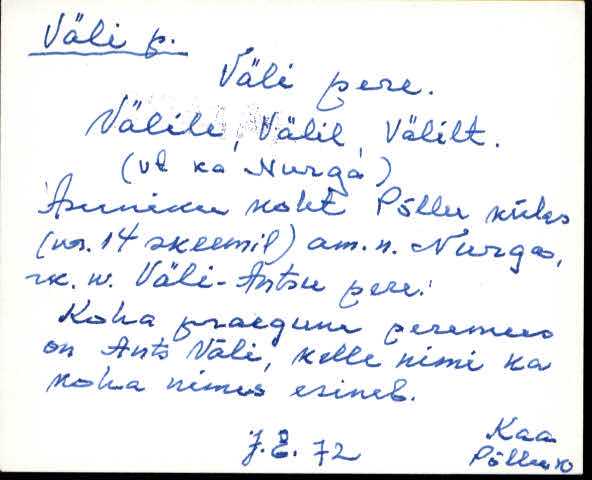 Väli p.
Väli pere.
Välile, Välil, Välilt.
(vt ka Nurga)
Asuniku koht Põllu külas
(nr. 14 skeemil) am. n. Nurga,
rk. n. Väli-Antsu pere.
Koha praegune peremees
on Ants Väli, kelle nimi ka
koha nimes esineb.
J.E. 72
Kaa
Põllu k